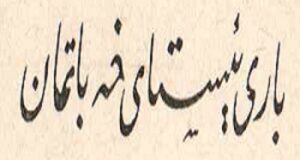 باری ئیستای خه‌باتمان